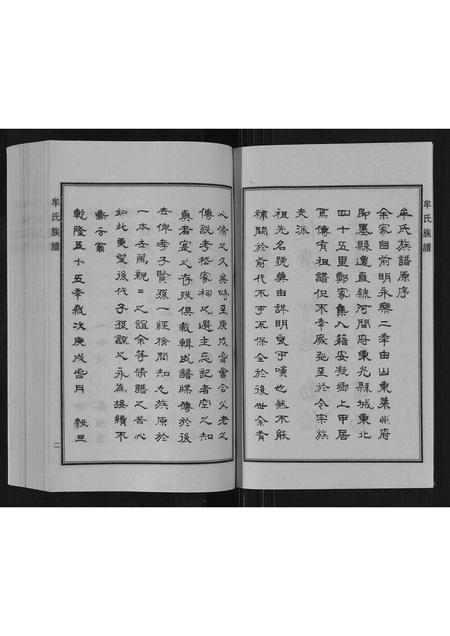 牟氏族譜
牟氏族譜原序
余家自前明永樂二年由山東萊州府
即墨縣遷直隸河間府東光縣城東北
四十五里鄭家集入籍安凝鄉上甲居
焉傳有祖譜但不幸廢弛至於今宗族
支派
祖光名號莫由詳明良可嘆也然不能
補闕於前代不可不保全於後世余有
心修之久矣時至庚戌嘗會合父老之
傳說考於家祠之邊主忘記者空之知
真者寔之存歿俱載輯成譜牒傳於後
世俾孝子賢孫一經檢閱知九族原於
一本去萬親之誼余等脩譜之苦心
如此更望後代子孫諒之永為接續不
斷云爾
乾隆五十五年歲次庚戌 月 穀旦
牟氏族譜
二